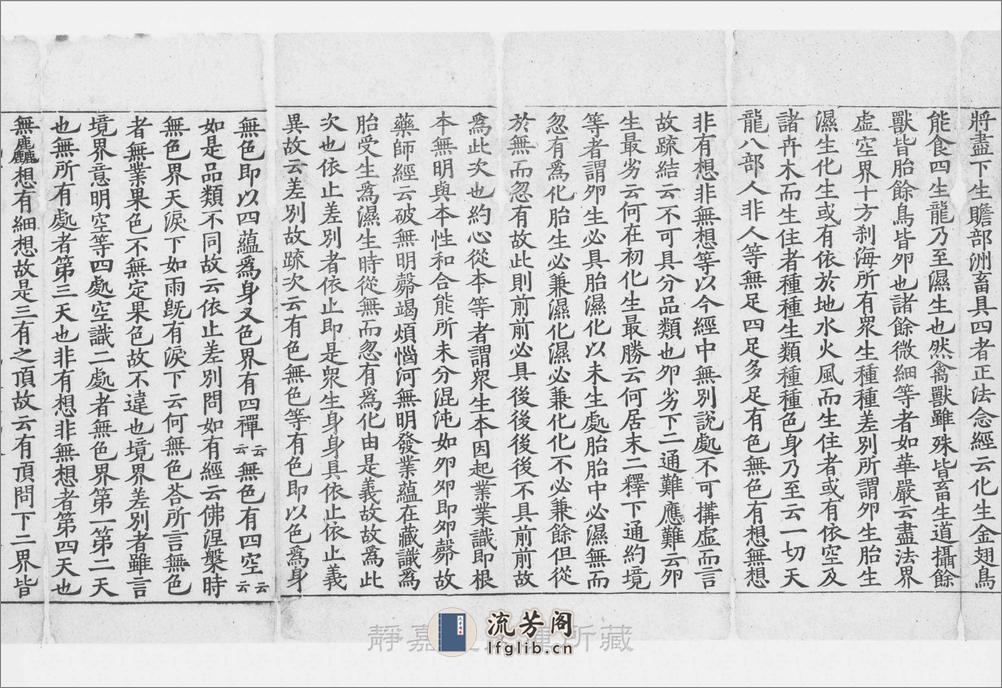 將盡下生贍部洲畜具四者正法念經云化生金翅鳥
能食四生龍乃至濕生也然禽獸雖殊皆畜生道攝餘
獸皆胎餘鳥皆卵也諸餘微細等者如華嚴云盡法界
虛空界十方刹海所有衆生種種差別所謂卵生胎生
濕生化生或有依於地水火風而生住者或有依空及
諸卉木而生住者種種生類種種色身乃至云一切天
龍八部人非人等無足四足多足有色無色有想無想
非有想非無想等以今經中無別說處不可搆虛而言
故疏結云不可具分品類也卵劣下二通難應難云卵
生最劣云何在初化生最勝云何居末二釋下通約境
等者謂卵生必具胎濕化以未生處胎胎中必濕無而
忽有爲化胎生必兼濕化濕必兼化化不必兼餘但從
於無而忽有故此則前前必具後後後後不具前前故
爲此次也約心從本等者謂衆生本因起業業識即根
本無明與本性和合能所未分混沌如卵卵即卵㲉故
藥師經云破無明㲉竭煩惱河無明發業蘊在藏識爲
胎受生爲濕生時從無而忽有爲化由是義故故爲此
次也依止差別者依止即是衆生身身具依止依止義
異故云差別故疏次云有色無色等有色即以色爲身
無色即以四蘊爲身又色界有四禪云云無色有四空云云
如是品類不同故云依止差別問如有經云佛涅槃時
無色界天淚下如雨旣有淚下云何無色荅所言無色
者無業果色不無定果色故不違也境界差別者雖言
境界意明空等四處空識二處者無色界第一第二天
也無所有處者第三天也非有想非無想者第四天也
無麤想有細想故是三有之頂故云有頂問下二界皆
流芳阁
lfglib.cn
靜嘉 所藏